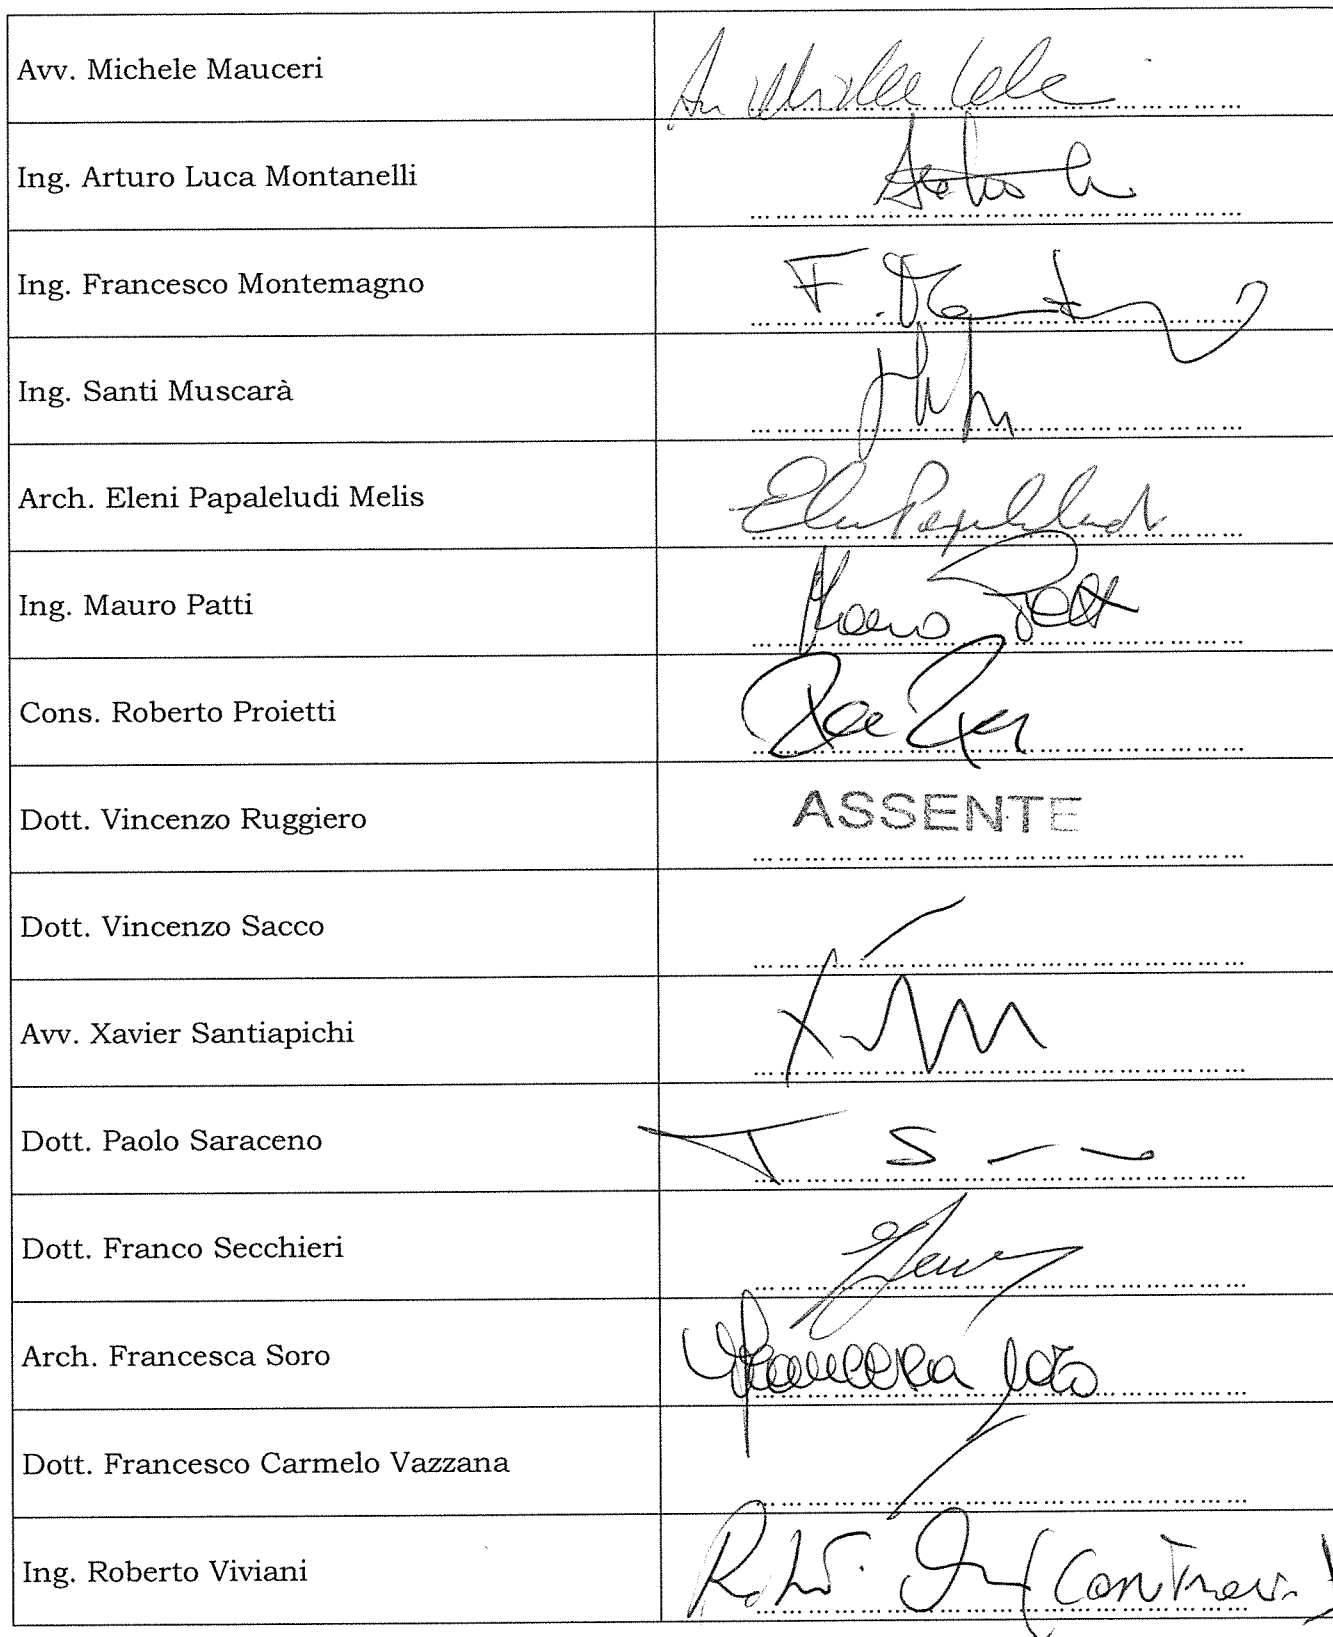 Avv. Michele Mauceri
Ing. Arturo Luca Montanelli
Ing. Francesco Montemagno
F.
Ing. Santi Muscarà
Arch. Eleni Papaleludi Melis
Ing. Mauro Patti
Mauro Patti
Cons. Roberto Proietti
Dott. Vincenzo Ruggiero ASSENTE
Dott. Vincenzo Sacco
Avv. Xavier Santiapichi
Dott. Paolo Saraceno
Dott. Franco Secchieri
Arch. Francesca Soro
Francesca Soro
Dott. Francesco Carmelo Vazzana
Ing. Roberto Viviani